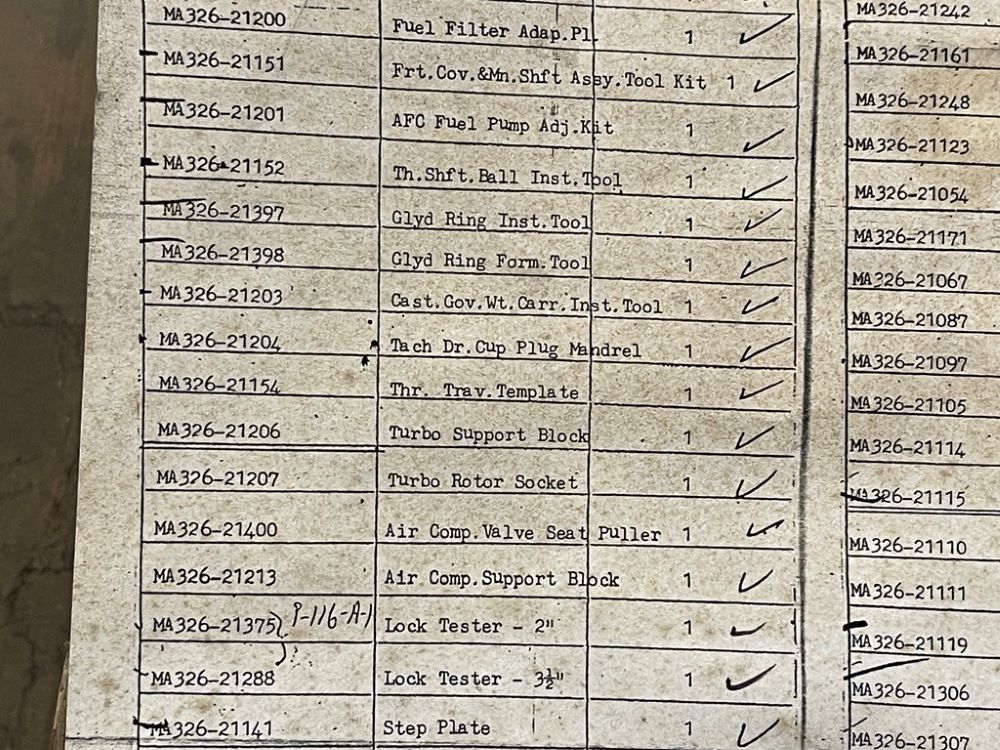 MA326-21200 Fuel Filter Adap.Pl. 1 ✓
MA326-21151 Frt.Cov.&Mn.Shft Assy.Tool Kit 1 ✓
MA326-21201 AFC Fuel Pump Adj.Kit 1 ✓
MA326-21152 Th.Shft.Ball Inst.Tool 1 ✓
MA326-21397 Glyd Ring Inst.Tool 1 ✓
MA326-21398 Glyd Ring Form.Tool 1 ✓
MA326-21203 Cast.Gov.Wt.Carr.Inst.Tool 1 ✓
MA326-21204 Tach Dr.Cup Plug Mandrel 1 ✓
MA326-21154 Thr. Trav.Template 1 ✓
MA326-21206 Turbo Support Block 1 ✓
MA326-21207 Turbo Rotor Socket 1 ✓
MA326-21400 Air Comp.Valve Seat Puller 1 ✓
MA326-21213 Air Comp.Support Block 1 ✓
MA326-21375 P-116-A-1 Lock Tester - 2" 1 ✓
MA326-21288 Lock Tester - 3½" 1 ✓
MA326-21141 Step Plate 1 ✓
MA326-21242
MA326-21161
MA326-21248
MA326-21123
MA326-21054
MA326-21171
MA326-21067
MA326-21087
MA326-21097
MA326-21105
MA326-21114
MA326-21115
MA326-21110
MA326-21111
MA326-21119
MA326-21306
MA326-21307